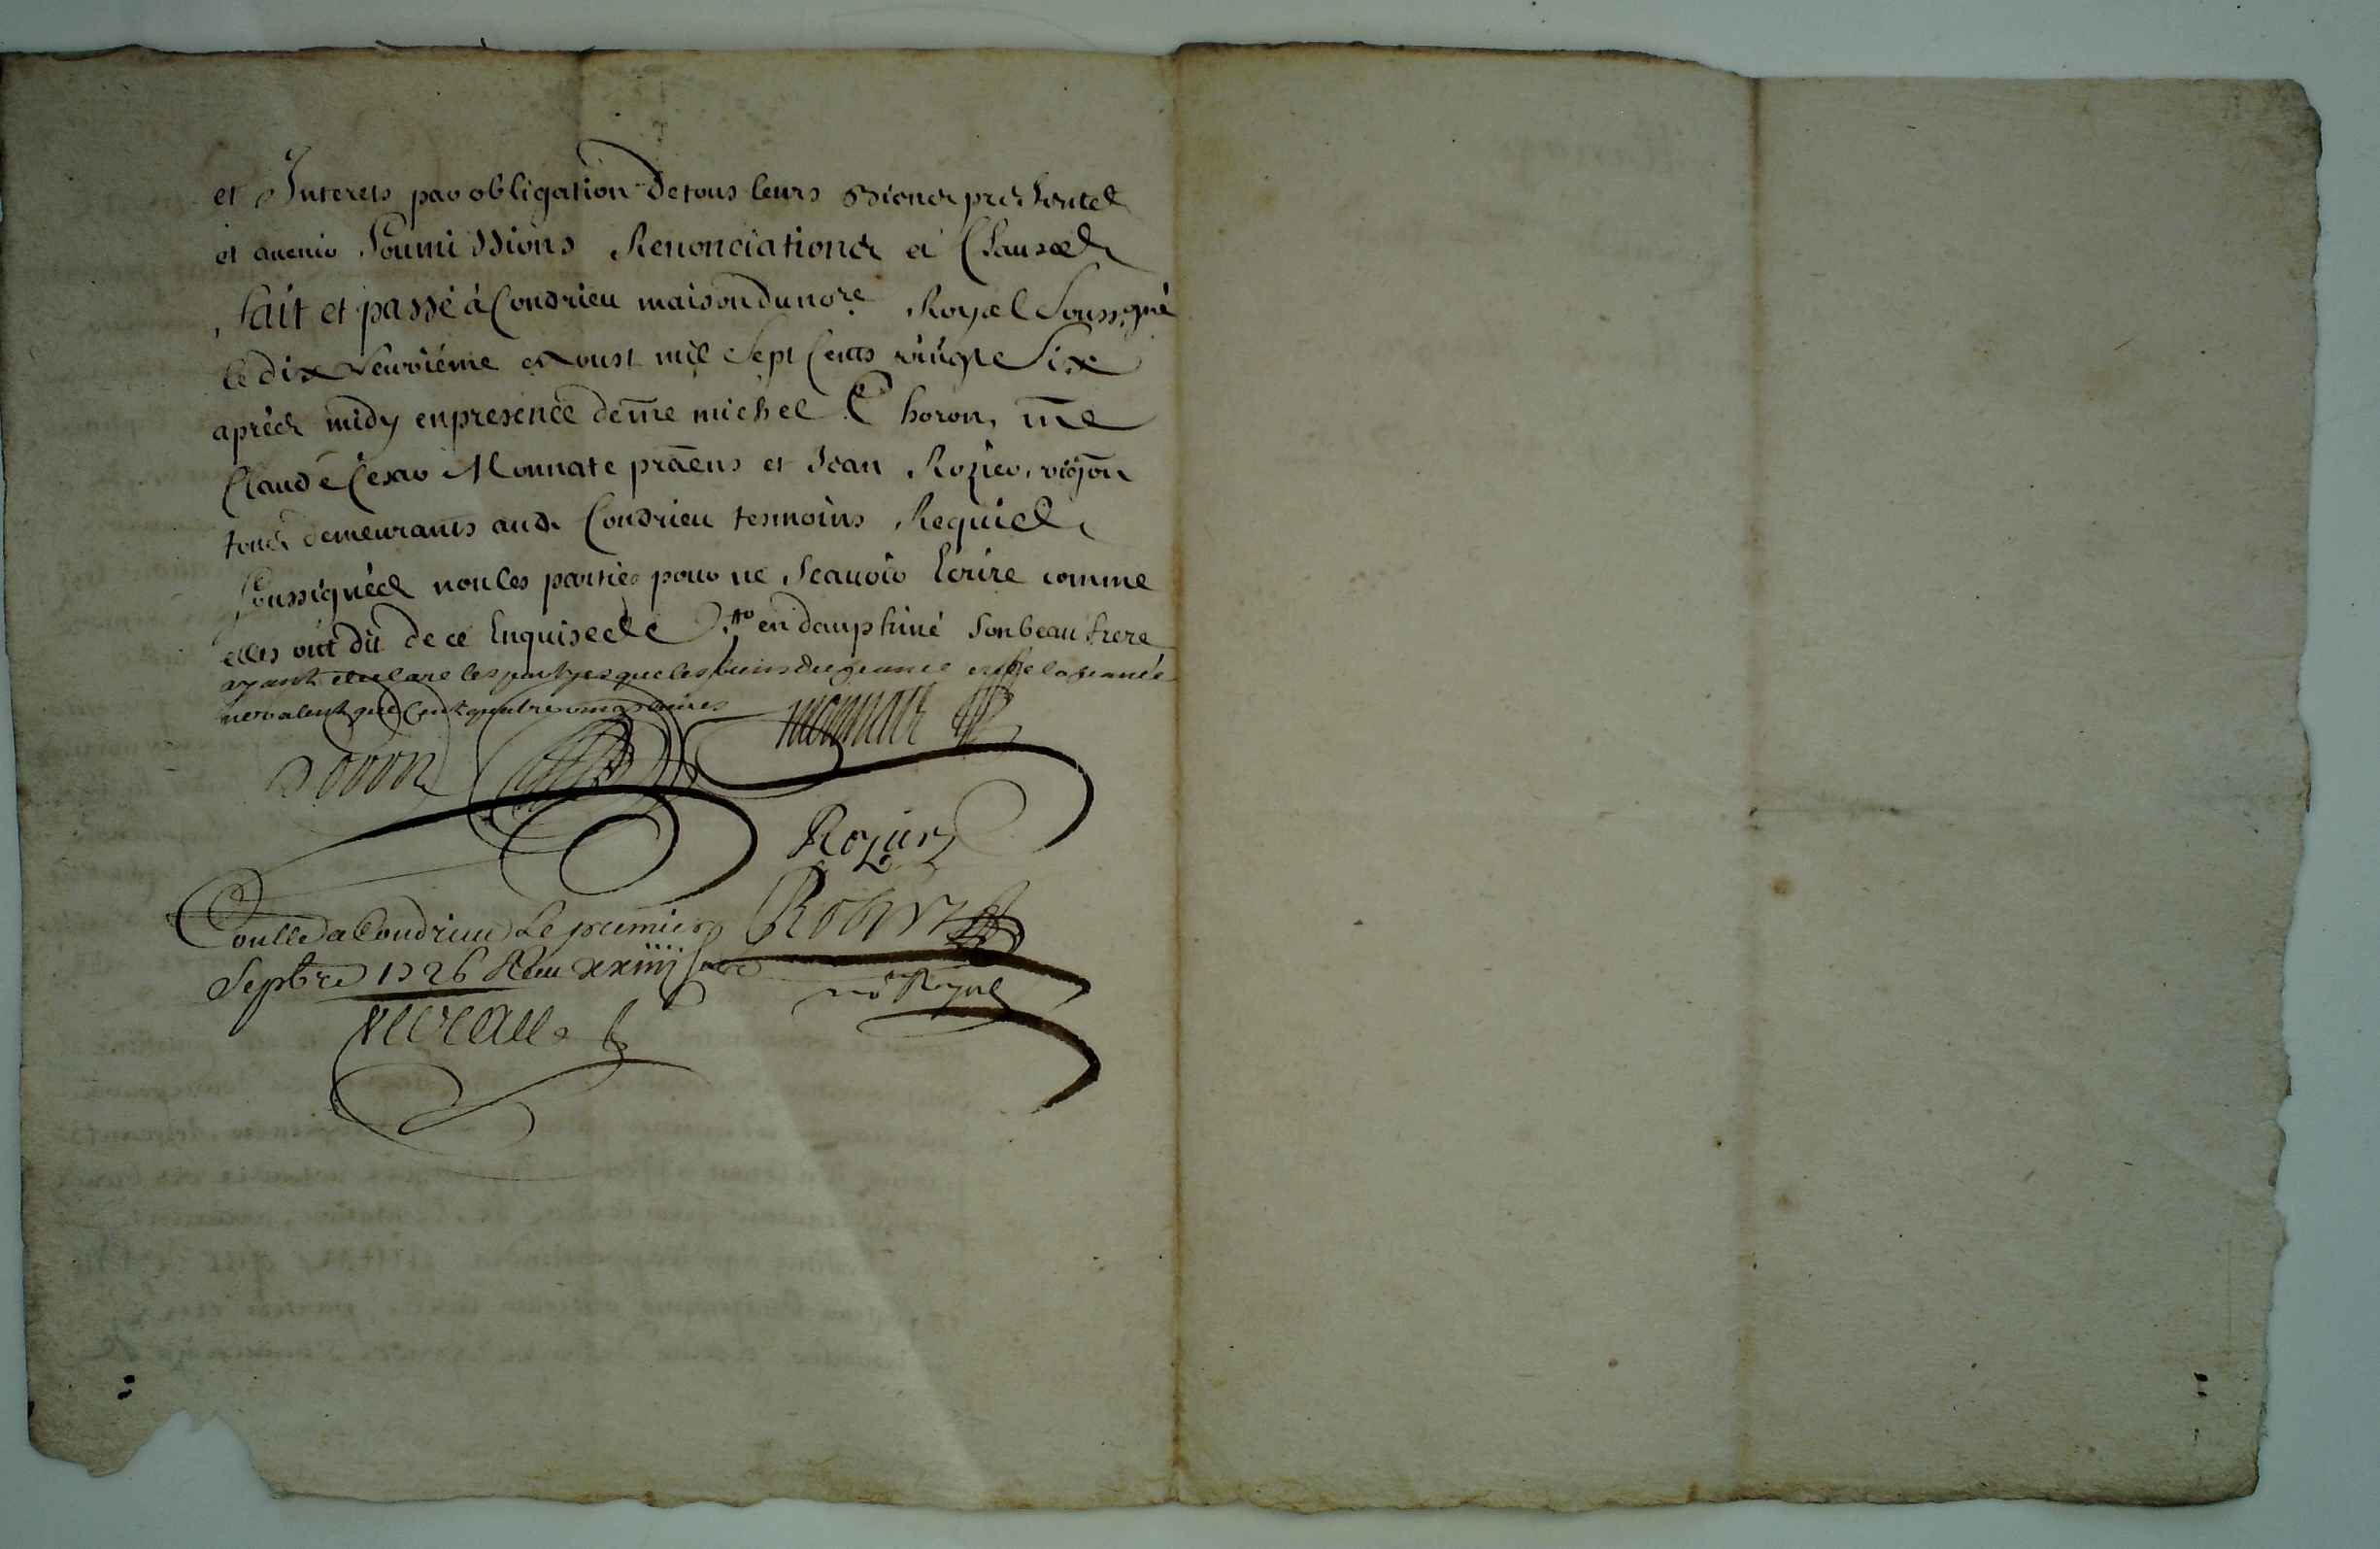 et Interets par obligation de tous leurs Biens presents
et avenir Soumissions Renonciations et Clauses
fait et passé à Condrieu maison du nore. Royal Soussigné
le dix neuviéme Aoust mil Sept Cents vingt Six
après midy en presence de me michel Choron, me
Claude Cesar Monnate praens et Jean Rozier, vigon
tous demeurants aud. Condrieu tesmoins Requis
Soussignés non les parties pour ne Scavoir Ecrire comme
elles ont dit de ce Enquises en dauphiné Son beau frere
ayant declare les partyes que les biens de
ne valent que Cent quatre vingt livres
monnate
Rozier
Conllé a Condrieu Le premier
Septbre 1726 Receu xxiiij
no Royal